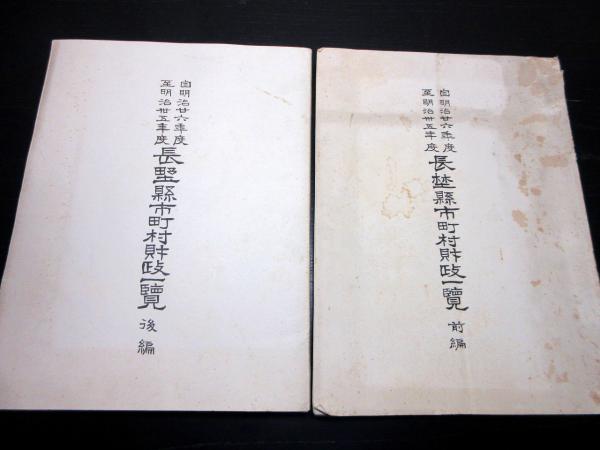 自明治廿六年度
至明治卅五年度
長野縣市町村財政一覽
前編
自明治廿六年度
至明治卅五年度
長野縣市町村財政一覽
後編